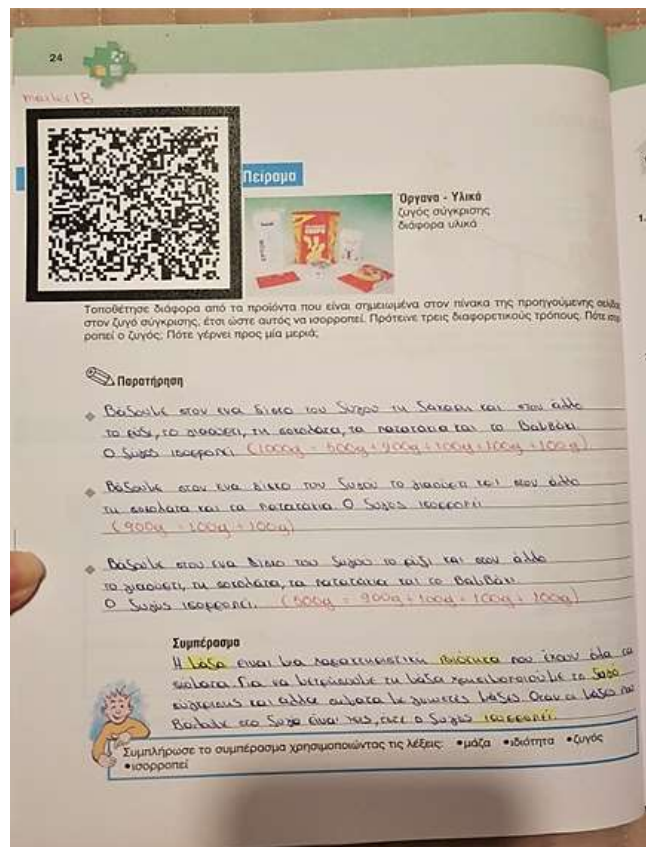 24
marker 18
Πείραμα
Όργανα - Υλικά
ζυγός σύγκρισης
διάφορα υλικά
1.
Τοποθέτησε διάφορα από τα προϊόντα που είναι σημειωμένα στον πίνακα της προηγούμενης σελίδας
στον ζυγό σύγκρισης, έτσι ώστε αυτός να ισορροπεί. Πρότεινε τρεις διαφορετικούς τρόπους. Πότε ισορ
ροπεί ο ζυγός; Πότε γέρνει προς μία μεριά;
Παρατήρηση
Βάζουμε στον ένα δίσκο του ζυγού τη ζάχαρη και στον άλλο
το ρύζι, το γιαούρτι, τη σοκολάτα, τα πατατάκια και το βαμβάκι
Ο ζυγός ισορροπεί (1000g = 500g + 200g + 100g + 100g + 100g)
Βάζουμε στον ένα δίσκο του ζυγού το γιαούρτι και στον άλλο
τη σοκολάτα και τα πατατάκια Ο ζυγός ισορροπεί
(200g = 100g + 100g)
Βάζουμε στον ένα δίσκο του ζυγού το ρύζι και στον άλλο
το γιαούρτι, τη σοκολάτα, τα πατατάκια και το βαμβάκι
Ο ζυγός ισορροπεί. (500g = 200g + 100g + 100g + 100g)
Συμπέρασμα
Η μάζα είναι μια χαρακτηριστική ιδιότητα που έχουν όλα τα
σώματα. Για να μετρήσουμε τη μάζα χρησιμοποιούμε το ζυγό
σύγκρισης και άλλα σώματα με γνωστές μάζες. Όταν οι μάζες που
βάλαμε στο ζυγό είναι ίσες, τότε ο ζυγός ισορροπεί.
Συμπλήρωσε το συμπέρασμα χρησιμοποιώντας τις λέξεις: •μάζα •ιδιότητα •ζυγός
•ισορροπεί